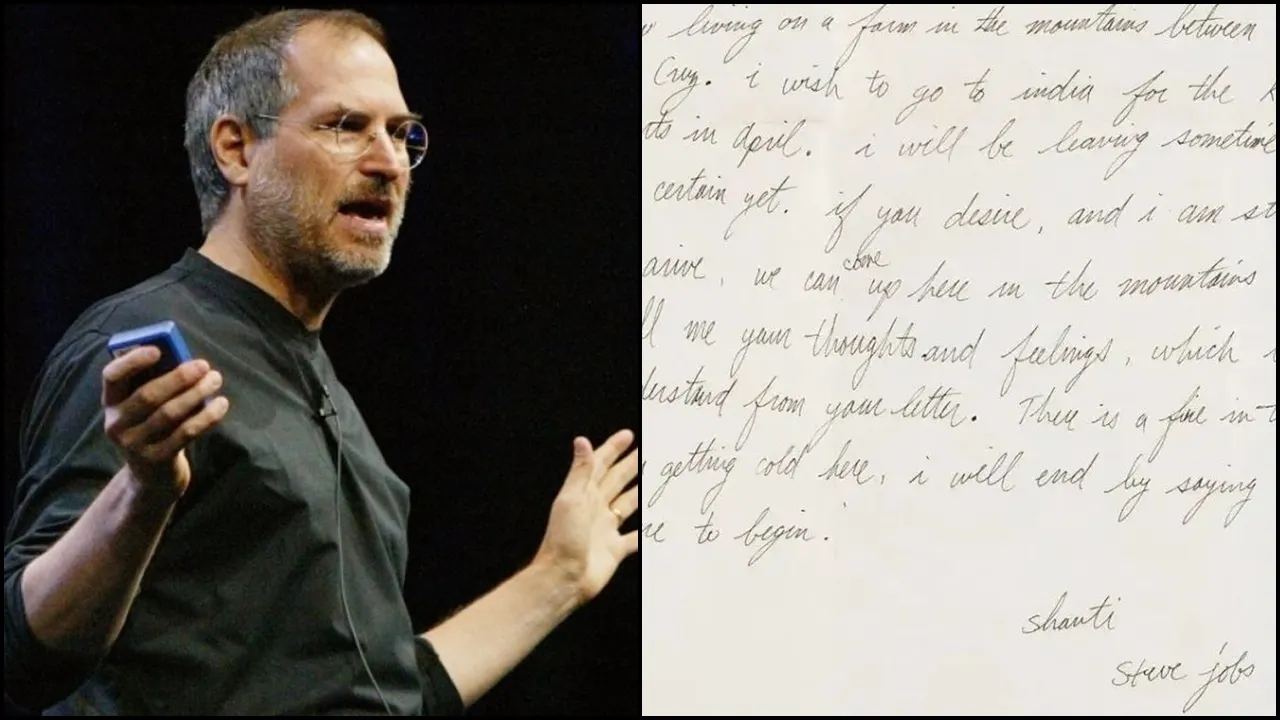 living on a farm in the mountains between
Cruz. i wish to go to india for the
in april. i will be leaving sometime
certain yet. if you desire, and i am st
arive, we can come up here in the mountains
ll me your thoughts and feelings, which
derstand from your letter. There is a fire in t
getting cold here, i will end by saying
to begin.
shanti
steve jobs